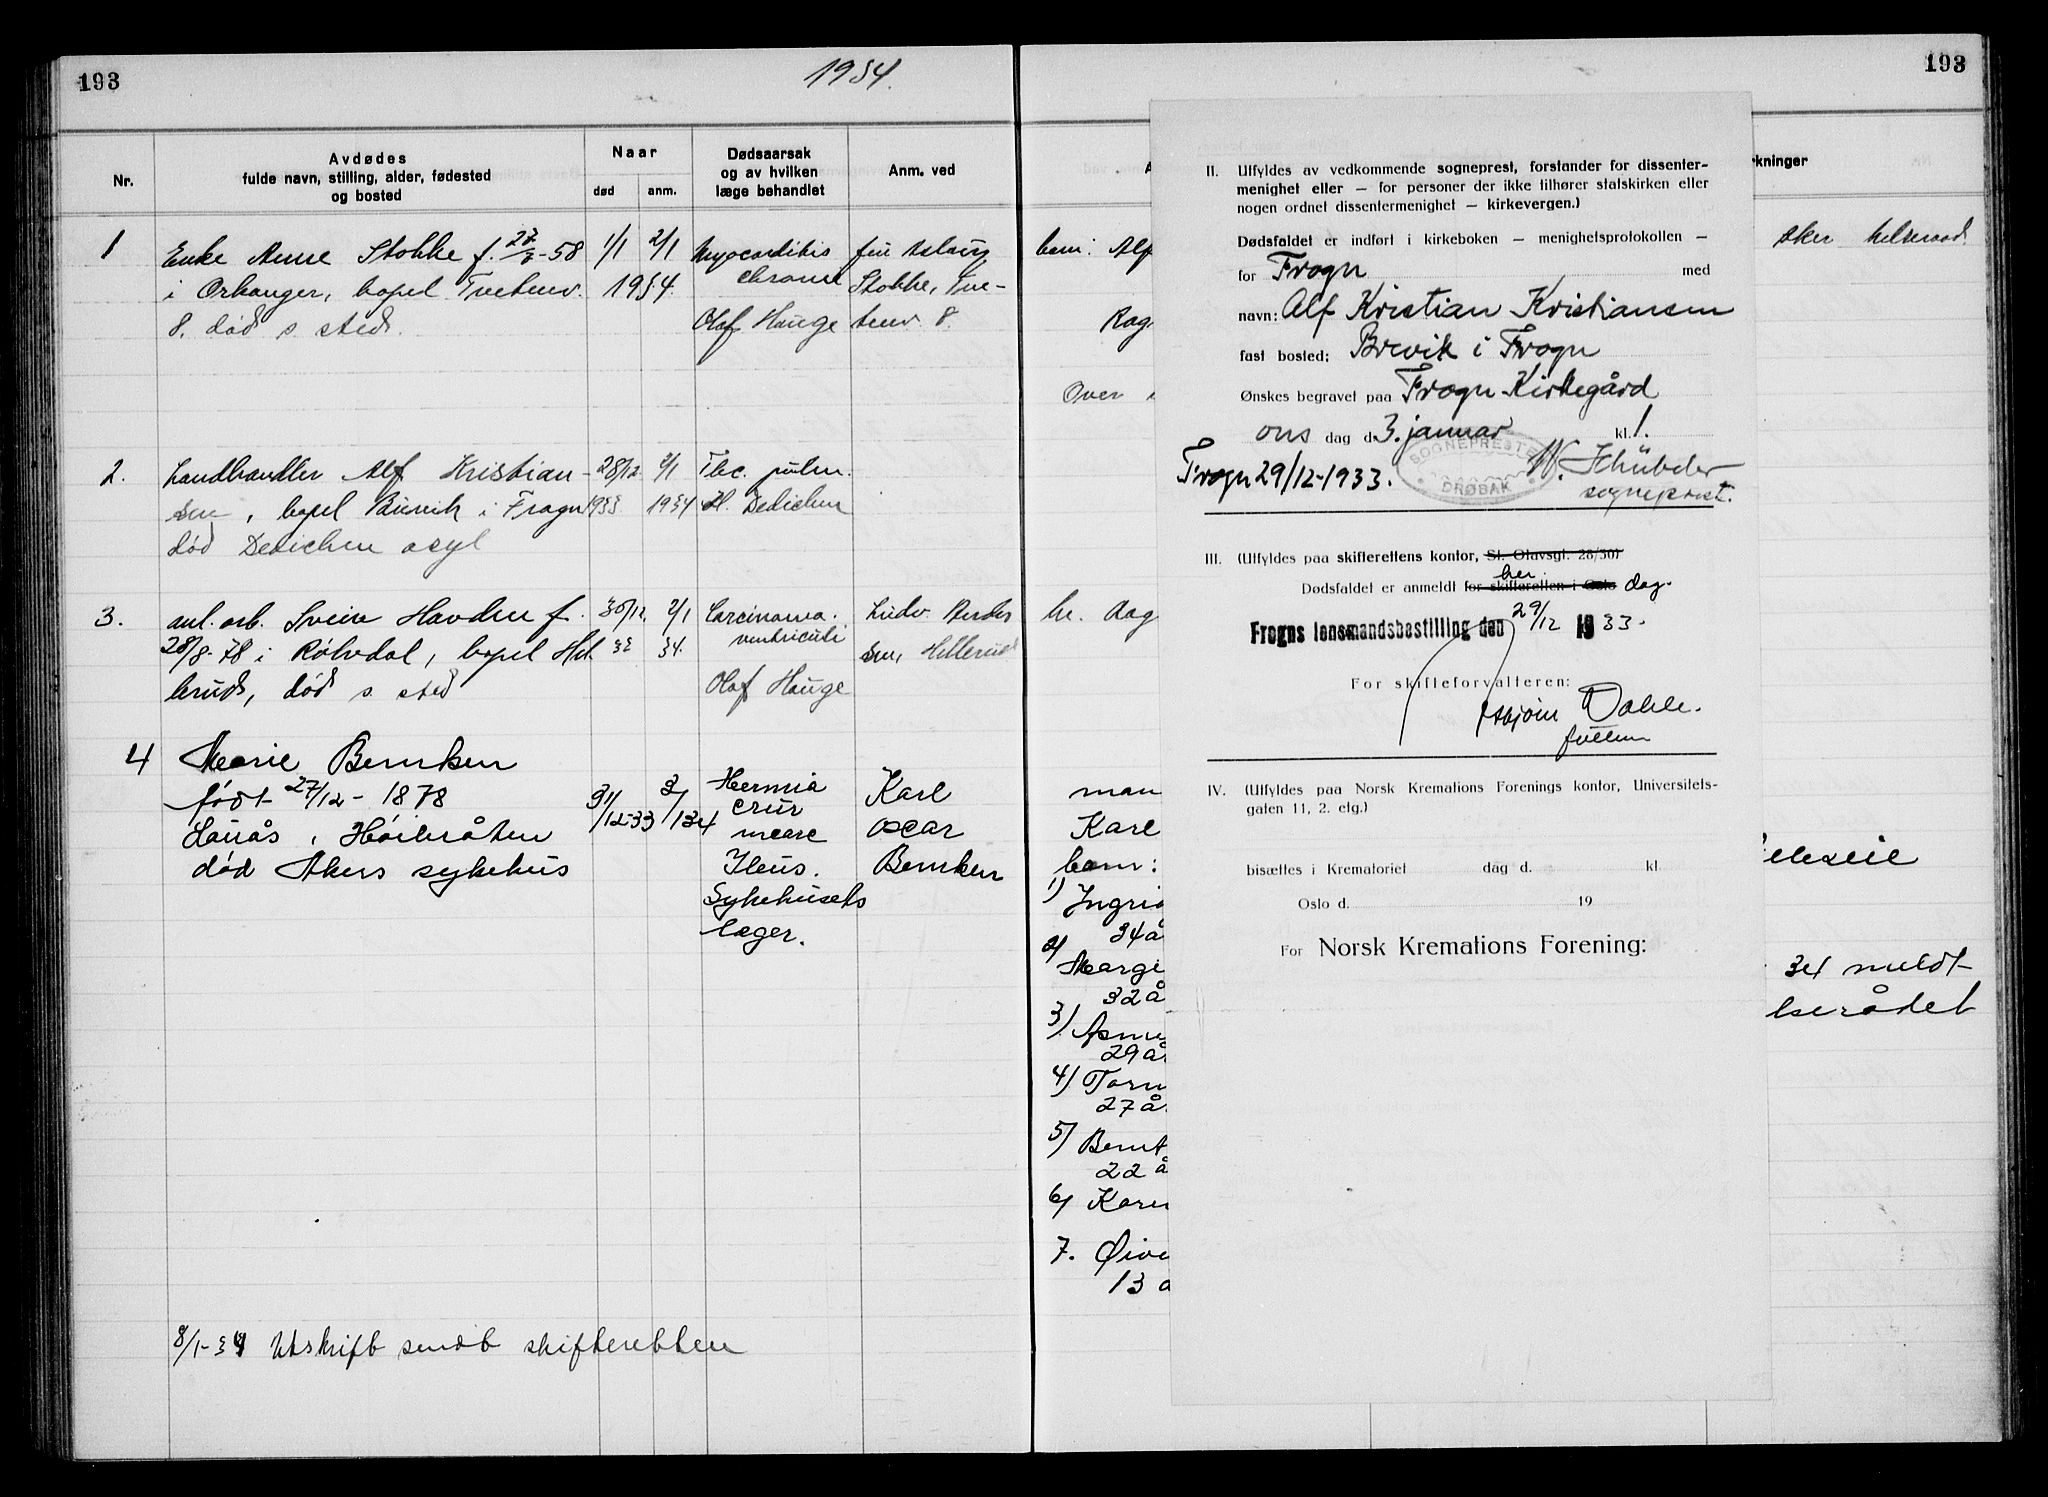 193
1934.
Nr.
Avdødes
fulde navn, stilling, alder, fødested
og bosted
Naar
død
anm.
Dødsaarsak
og av hvilken
læge behandlet
Anm. ved
1
Enke Anne Stokke f. 27/2-58
i Orkanger, bopel Tvetenv.
8. død s. sted.
1/1 2/1
1934.
Myocarditis
chronica
Olaf Hauge
fru Aslaug
Stokke, Tve-
tenv. 8.
2.
Landhandler Alf Kristian-
sen, bopel Brevik i Frogn
død Dedichen asyl
28/12 2/1
1933 1934
Tbc. pulm.
H. Dedichen
3.
anl. arb. Svein Havden f.
28/8-78 i Røhvdal, bopel Hil-
lerud, død s. sted
30/12. 2/1
33 34.
Carcinoma
ventriculi
Olaf Hauge
Ludv. Ander
sen, Hillerud
4
Marie Bernken
født 27/12-1878
Lauås, Høibråten
død Akers sykehus
31/12-33 3/1 34
Hernia
crur
incarc
Ileus.
Sykehusets
læger.
Karl
Oscar
Bernken
8/1-34 Utskrift sendt skifteretten
193
rkninger
barn: Alf
Rag
Over
aker helseraad
hr. Aag
man
Karl
barn:
1) Ingri
34 å
2) Margi
32 å
3) Asm
29 å.
4) Torm
27 å.
5) Bernt
22 å
6) Karu
7. Øiv
13 å
34 meldt
lserådet
II. Utfyldes av vedkommende sogneprest, forstander for dissenter-
menighet eller — for personer der ikke tilhører statskirken eller
nogen ordnet dissentermenighet — kirkevergen.)
Dødsfaldet er indført i kirkeboken — menighetsprotokollen —
for Frogn med
navn: Alf Kristian Kristiansen
fast bosted: Brevik i Frogn
Ønskes begravet paa Frogn Kirkegård
ons dag d. 3. januar kl. 1.
SOGNEPRESTEN
DRØBAK
Frogn 29/12-1933. W. Schübeler
sogneprest.
III. (Utfyldes paa skifterettens kontor, St. Olavsgt. 28/30)
her
Dødsfaldet er anmeldt for skifteretten i Oslo dag.
Frogns lensmandsbestilling den 29/12 1933.
For skifteforvalteren:
Asbjørn Dahle.
fullm
IV. (Utfyldes paa Norsk Kremations Forenings kontor, Universitets-
gaten 11, 2. etg.)
bisættes i Krematoriet dag d. kl.
Oslo d. 19
For Norsk Kremations Forening: